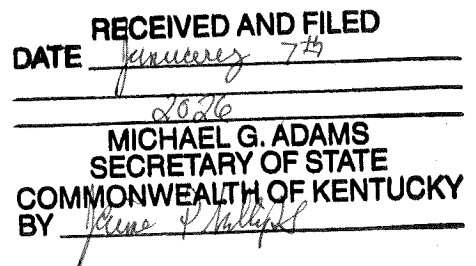 RECEIVED AND FILED
DATE January 7th
2026
MICHAEL G. ADAMS
SECRETARY OF STATE
COMMONWEALTH OF KENTUCKY
BY Phillips